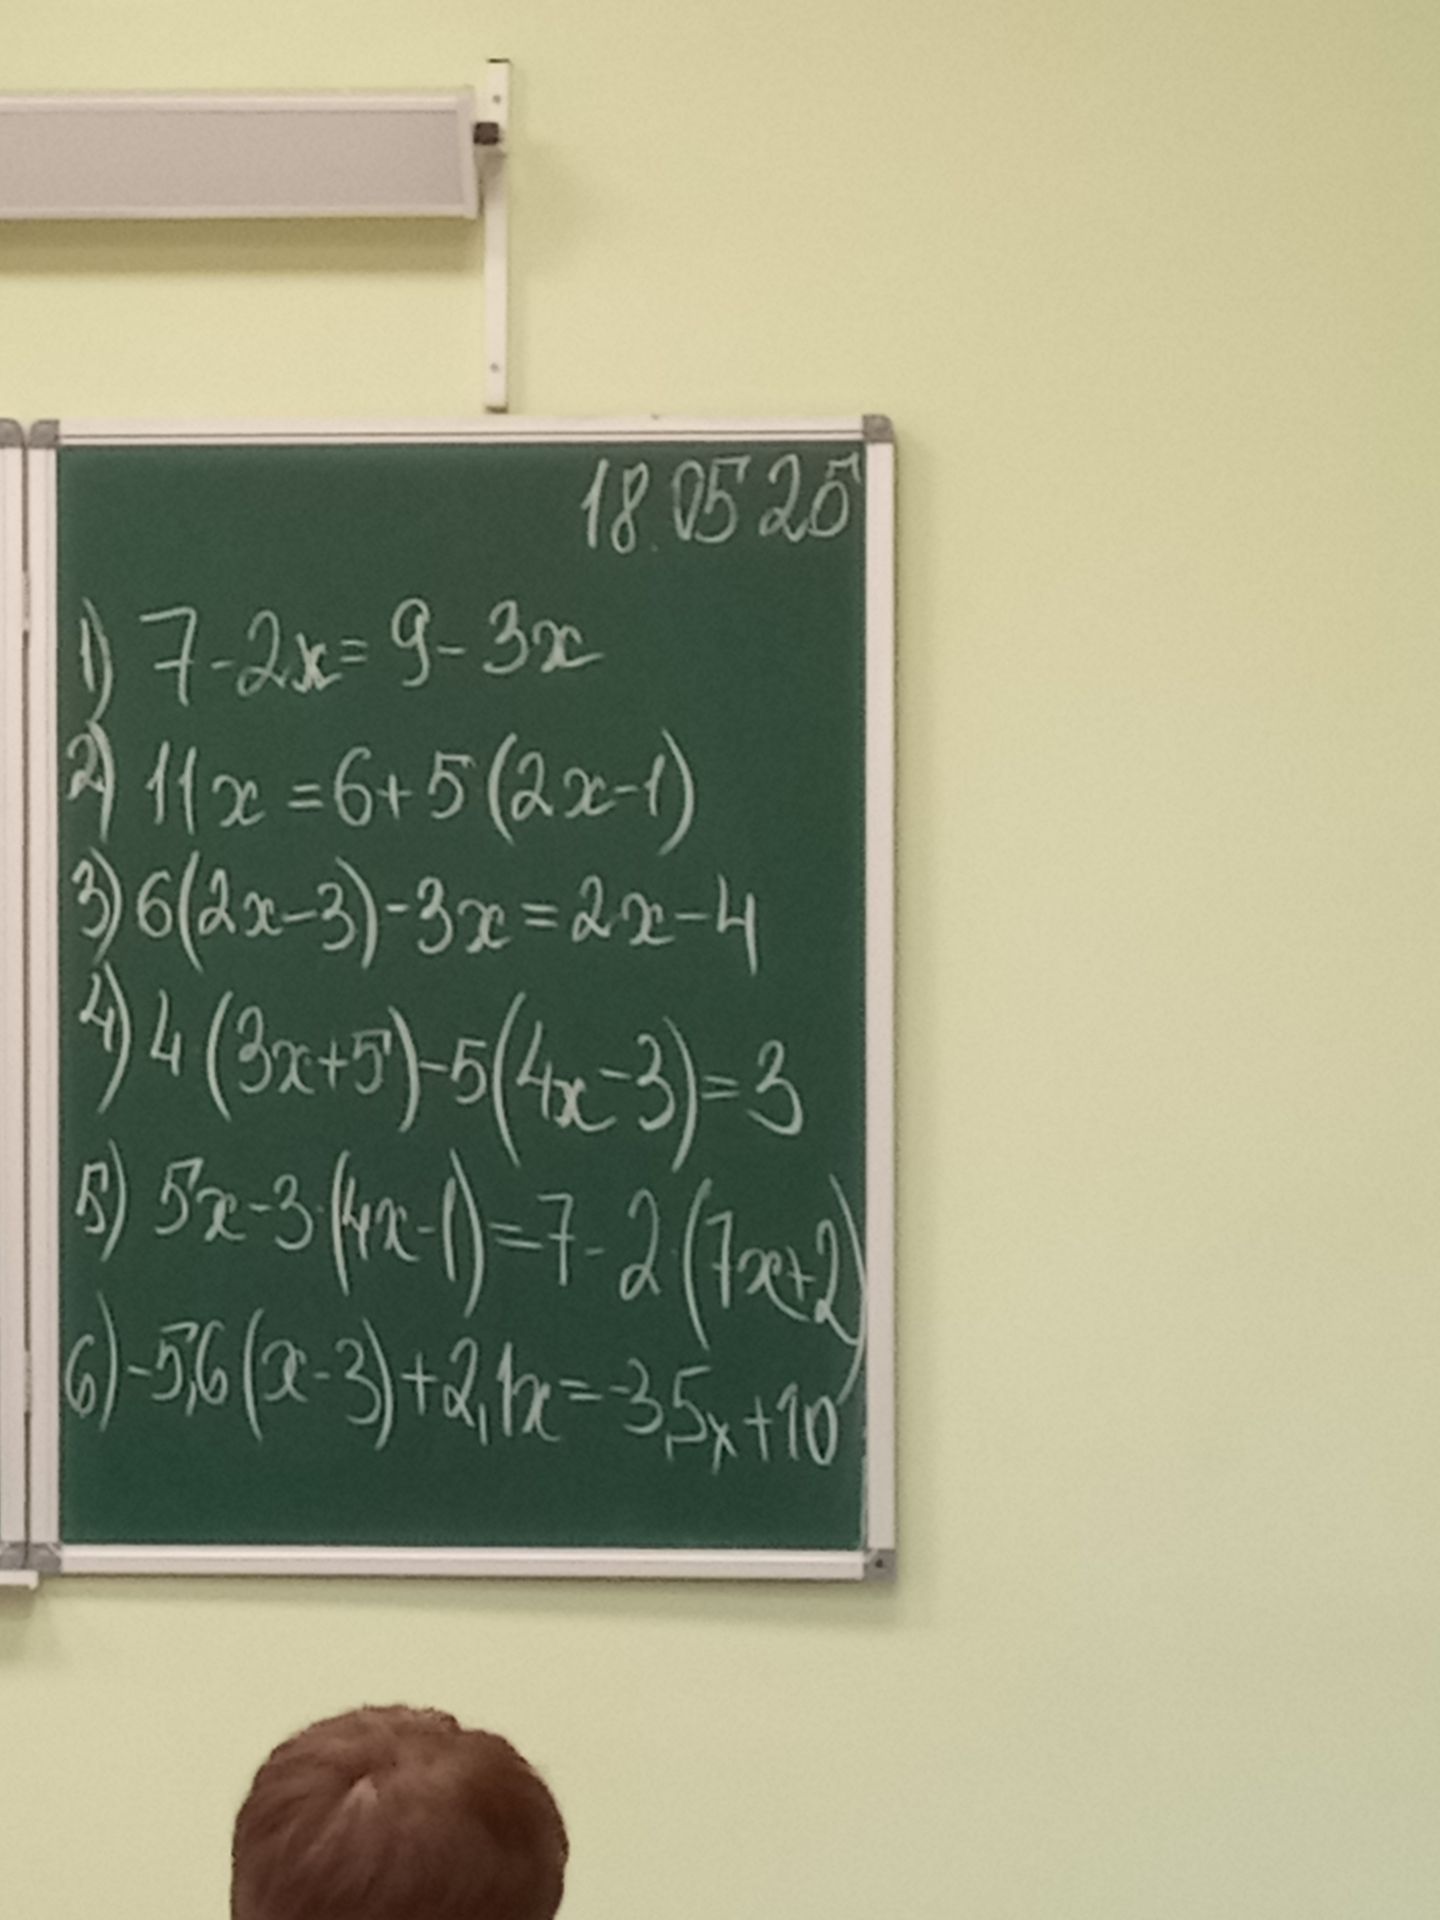 18.05 25
1) 7-2x=9-3x
2) 11x=6+5(2x-1)
3) 6(2x-3)-3x=2x-4
4) 4(3x+5)-5(4x-3)=3
5) 5x-3·(4x-1)=7-2·(7x+2)
6) -5,6(x-3)+2,1x=-3,5x+10